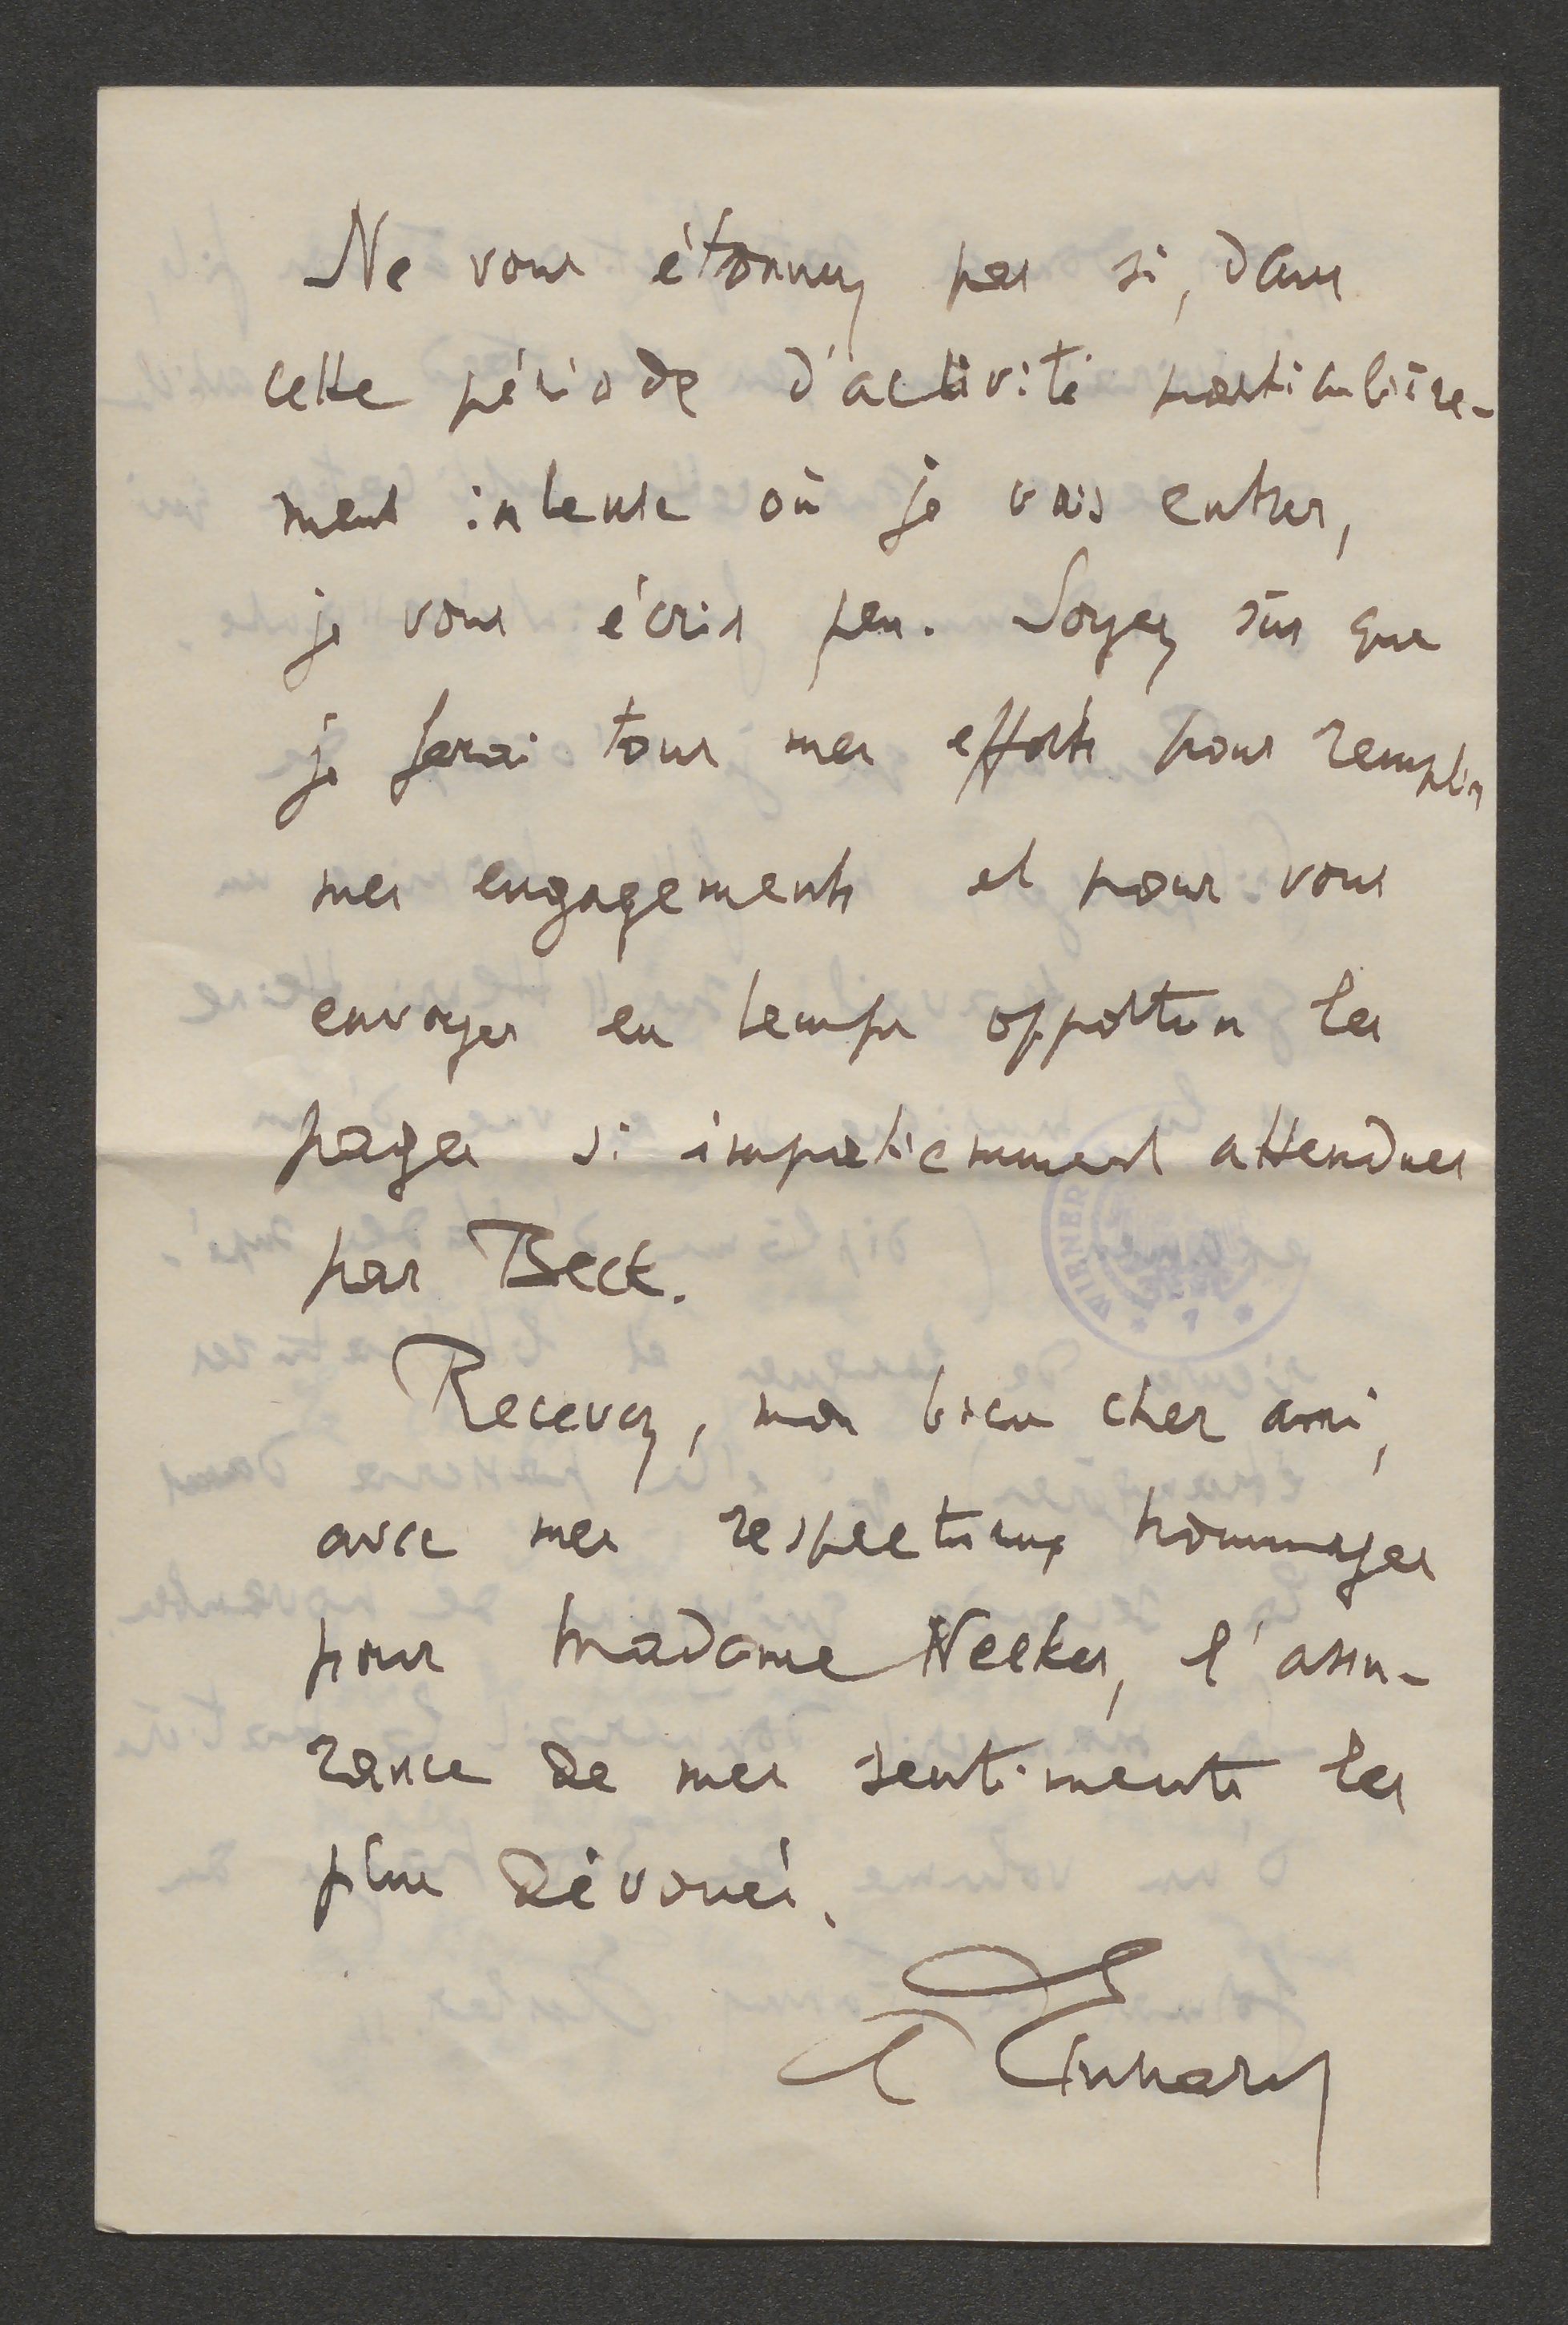 Ne vous étonnez pas si, dans
cette période d'activité particulière-
ment intense où je vais entrer,
je vous écris peu. Soyez sûr que
je ferai tous mes efforts pour remplir
mes engagements et pour vous
envoyer en temps opportun les
pages si impatiemment attendues
par Beck.
Recevez, mon bien cher ami,
avec mes respectueux hommages
pour Madame Necker, l'assu-
rance de mes sentiments les
plus dévoués.
WIENER